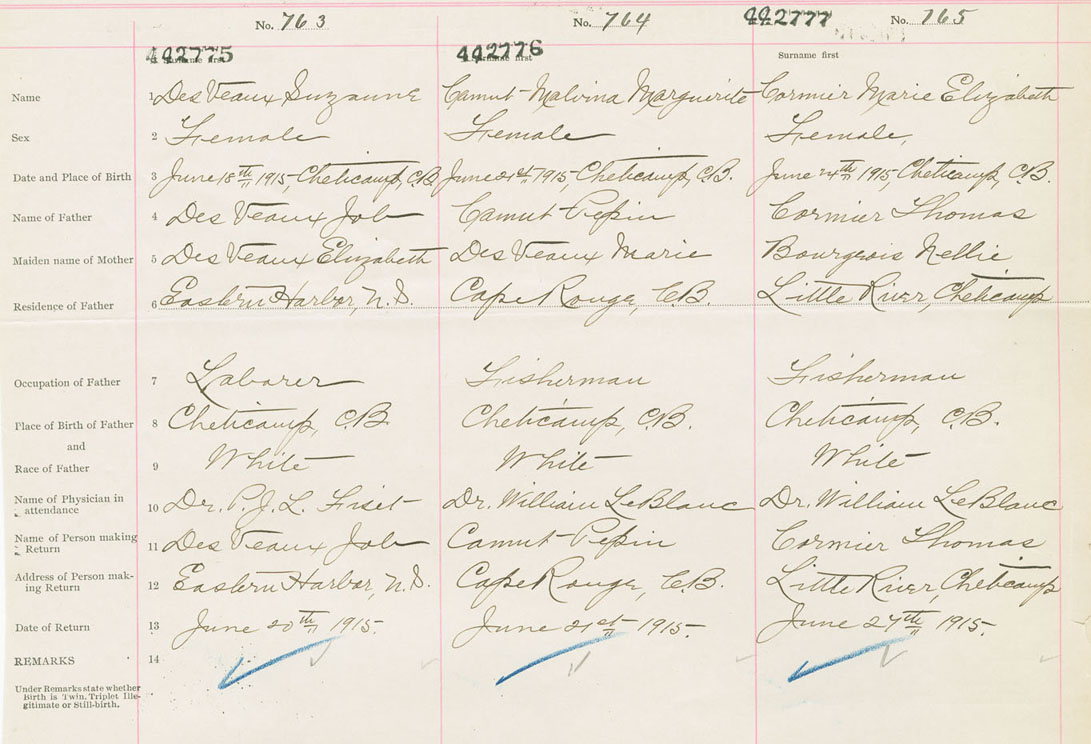 No. 763 No. 764 442777 No. 765
442775 442776
Surname first Surname first Surname first
Name 1 DesVeaux Suzanne Camut Malvina Marguirite Cormier Marie Elizabeth
Sex 2 Female Female Female,
Date and Place of Birth 3 June 18th 1915, Cheticamp, C.B. June 21st 1915, Cheticamp, C.B. June 1915, Cheticamp, C.B.
Name of Father 4 Des Veaux Job Camut Pepin Cormier Thomas
Maiden name of Mother 5 Des Veaux Elizabeth Des Veaux Marie Bourgeois Nellie
Residence of Father 6 Eastern Harbor, N.S. Cape Rouge, C.B Little River, Cheticamp
Occupation of Father 7 Laborer Fisherman Fisherman
Place of Birth of Father 8 Cheticamp, C.B. Cheticamp, C.B. Cheticamp, C.B.
and
Race of Father 9 White White White
Name of Physician in
attendance 10 Dr. P.J.L. Fiset Dr. William LeBlanc Dr. William LeBlanc
Name of Person making
Return 11 Des Veaux Job Camut Pepin Cormier Thomas
Address of Person mak-
ing Return 12 Eastern Harbor, N.S. Cape Rouge, C.B. Little River, Cheticamp
Date of Return 13 June 20th 1915. June 21st 1915. June 27th 1915.
REMARKS 14
Under Remarks state whether
Birth is Twin, Triplet Ille-
gitimate or Still-birth.